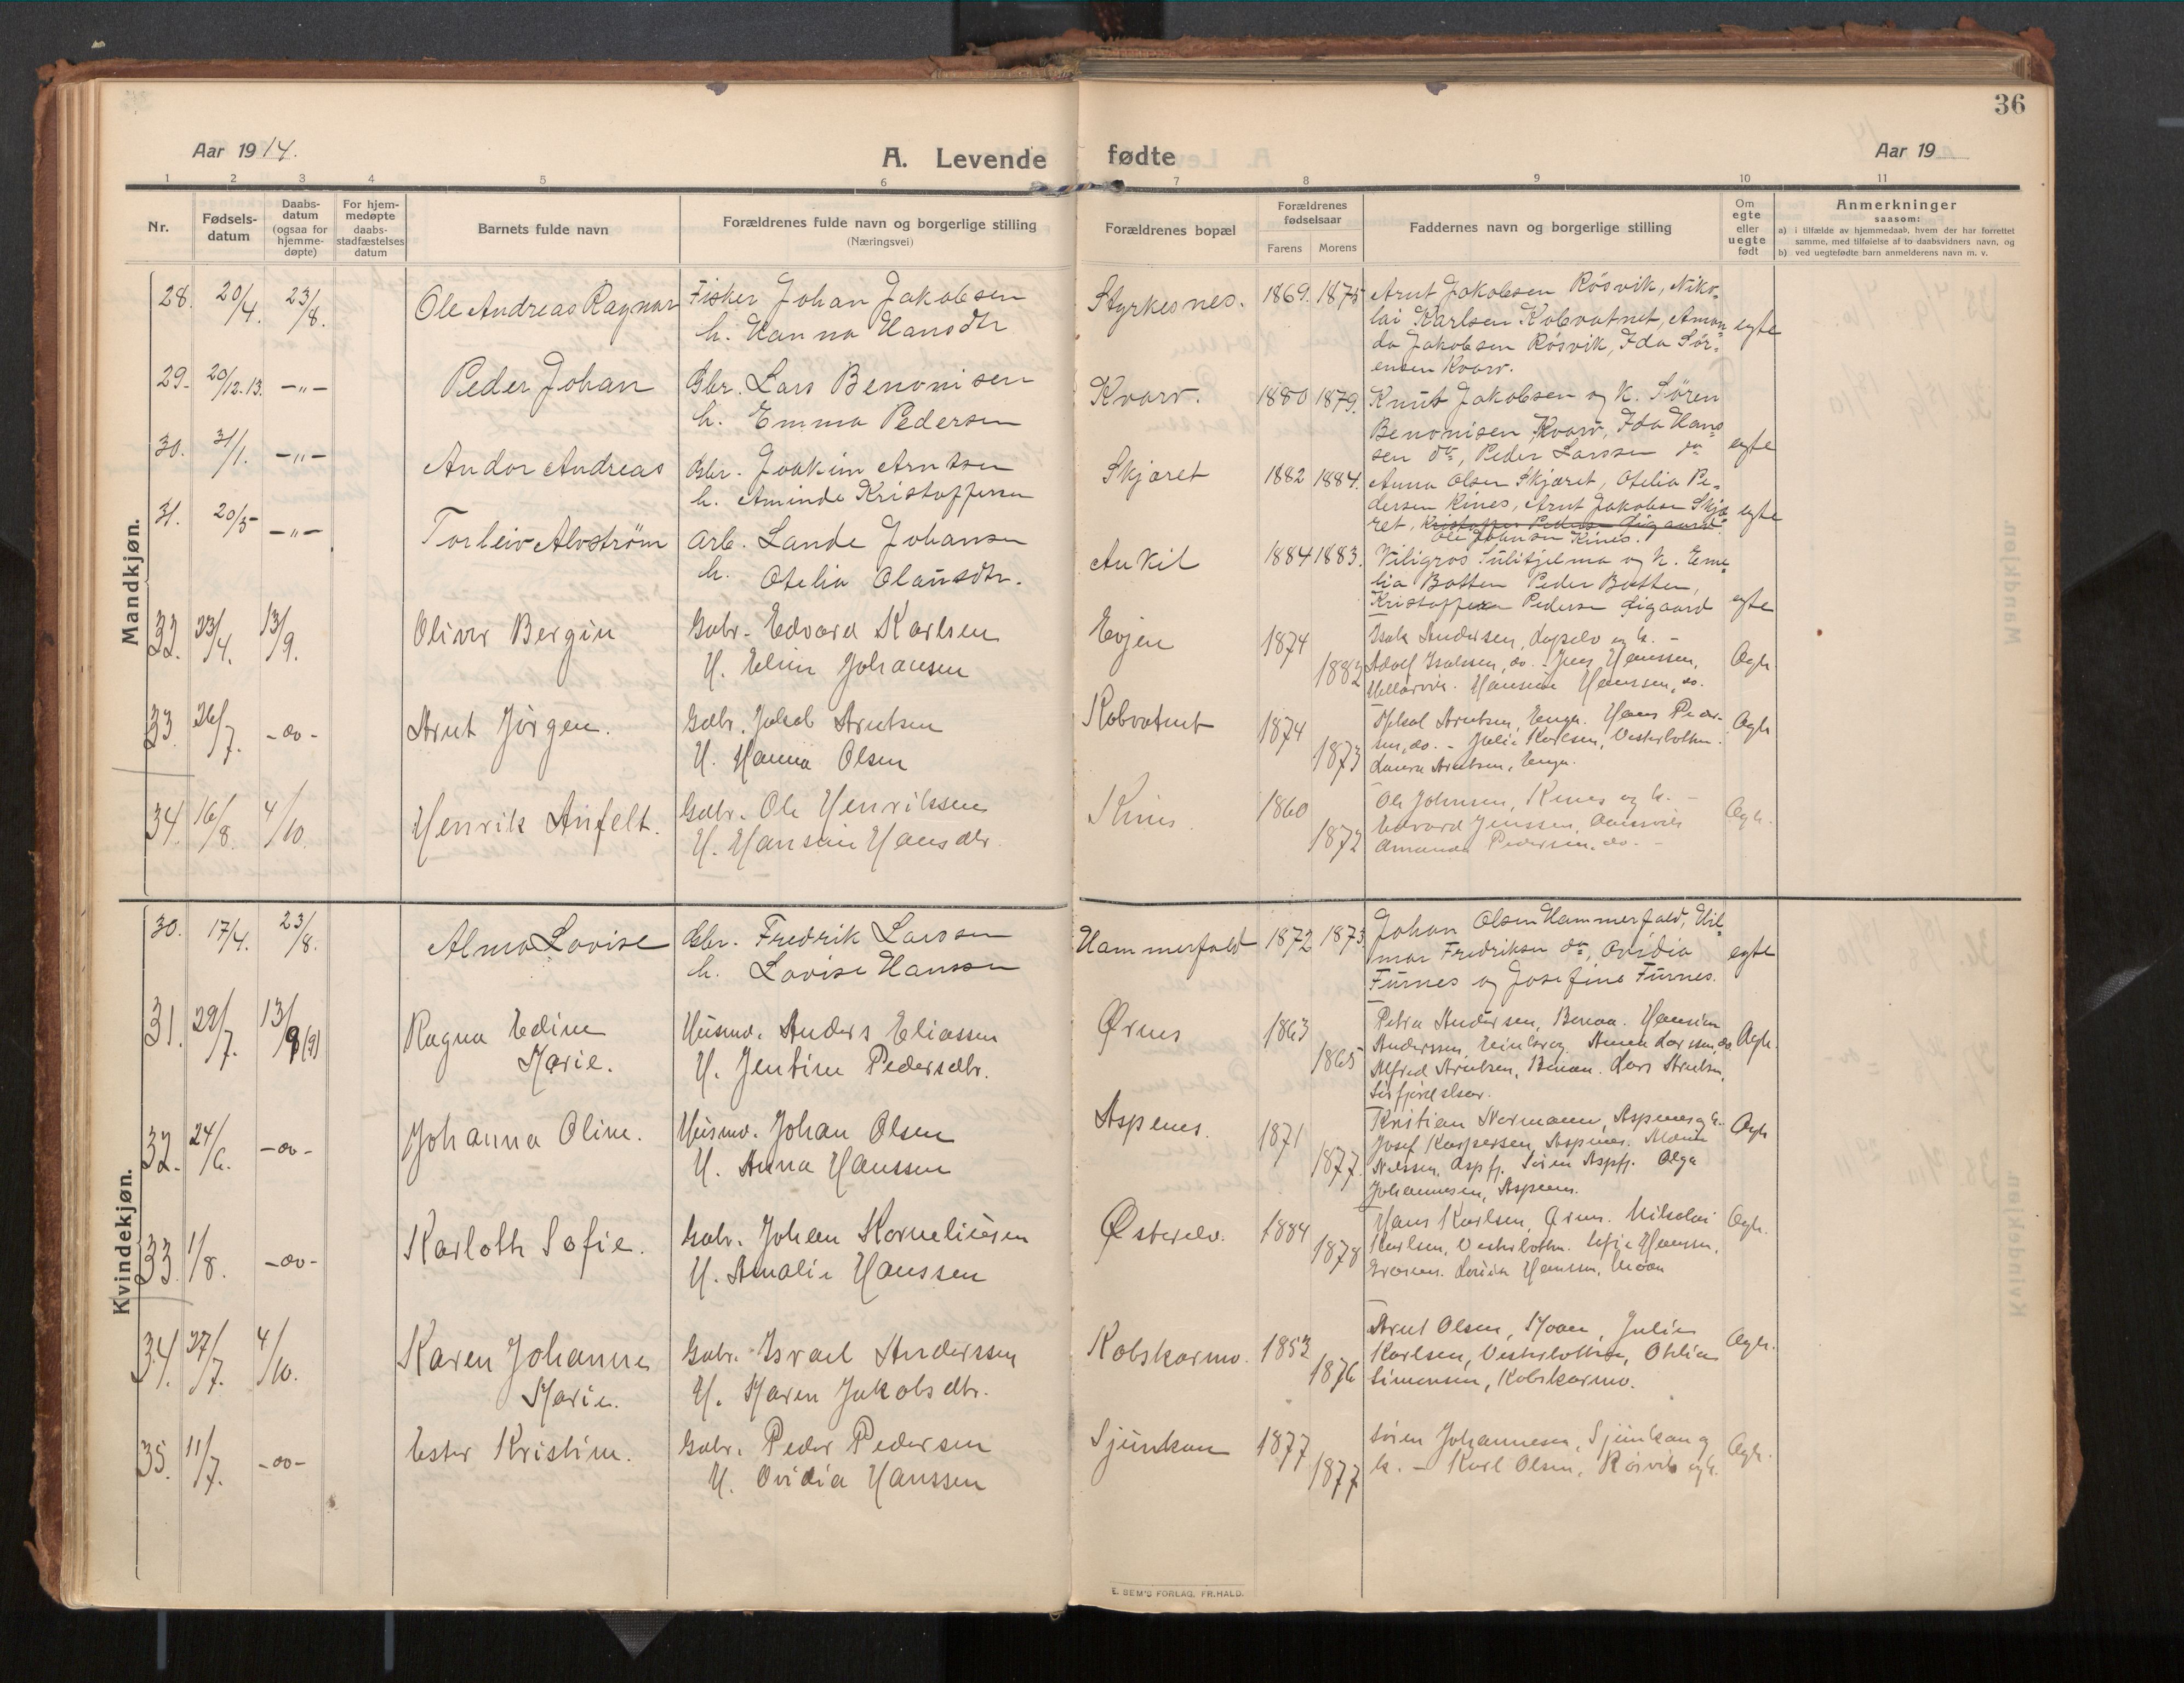 36
Aar 1914.
A. Levende fødte
Aar 19
1 2 3 4 5 6 7 8 9 10 11
Nr.
Fødsels-
datum
Daabs-
datum
(ogsaa for
hjemme-
døpte)
For hjem-
medøpte
daabs-
stadfæstelses
datum
Barnets fulde navn
Forældrenes fulde navn og borgerlige stilling
(Næringsvei)
Forældrenes bopæl
Forældrenes
fødselsaar
Farens Morens
Faddernes navn og borgerlige stilling
Om
egte
eller
uegte
født
Anmerkninger
saasom:
a) i tilfælde av hjemmedaab, hvem der har forrettet
samme, med tilføielse af to daabsvidners navn, og
b) ved uegtefødte barn anmelderens navn m. v.
Mandkjøn.
28. 20/4. 23/8. Ole Andreas Ragnar
Fisker Johan Jakobsen
h. Hanna Hansdtr
Styrkesnes. 1869. 1875
Arnt Jakobsen Røsvik, Niko-
lai Karlsen Kobvatnet, Aman-
da Jakobsen Røsvik, Ida Sør-
ensen Kvarv.
egte
29. 20/12.13. -"- Peder Johan
Gbr. Lars Benonisen
h. Emma Pedersen
Kvarv. 1880 1879.
Knut Jakobsen og h. Søren
Benonisen Kvarv, Ida Han-
sen do, Peder Larssen do
egte
30. 31/1. -"- Andor Andreas
Gbr. Joakim Arntsen
h. Aminda Kristoffersen
Skjæret 1882 1884.
Anna Olsen Skjæret, Otelia Pe-
dersen Kines, Arnt Jakobsen Skjæ-
ret, Kristoffer Pedersen Ligaard
Ole Johnsen Kines.
egte
31. 20/5 -"- Torleiv Alvstrøm
Arb. Lande Johansen
h. Otelia Olausdtr.
Ankil 1884 1883.
Viligros Sulitjelma og h. Eme-
lia Botten Peder Botten,
Kristoffer Pedersen Ligaard
egte
32. 23/4. 13/9. Oliver Bergin
Gabr. Edvard Karlsen
H. Elin Johansen
Evjen 1874 1882
Isak Andersen, og h. -
Adolf Isaksen, do. - Jens Hanssen,
Hansine Hanssen, do.
Øgh
33. 26/7. -do- Arnt Jørgen.
Gabr. Jakob Arntsen
H. Hanna Olsen
Kobvatnet 1874 1873
Arntsen, Enga. Hans Peder-
sen, do. - Julie Karlsen, Vesterbotten.
Laura Arntsen, Enga.
Øgh
34. 16/8. 4/10. Henrik Anfelt.
Gabr. Ole Henrikssen
H. Hansine Hansdtr.
Kines. 1860 1872
Ole Johnsen, Kines og h. -
Edvard Jenssen,
Amanda Pedersen, do. -
Øgh.
Kvindekjøn.
30. 17/4. 23/8. Alma Lovise
Gbr. Fredrik Larssen
h. Lovise Hanssen
Hammerfald 1872 1873.
Johan Olsen Hammerfald, Hil-
mar Fredriksen do, Ovidia
Furnes og Josefine Furnes.
egte
31. 29/7. 13/9 (9) Ragna Edine
Marie.
Husmd. Anders Eliassen
H. Jentine Pedersdtr.
Ørnes 1863 1865
Petra Andersen, Hansine
Anderssen, Anna Larssen, do.
Alfred Arntsen, Lars Arntsen,
Øgh.
32. 24/6. -do- Johanna Oline.
Husmd. Johan Olsen
H. Anna Hanssen
Aspenes. 1871 1877.
Kristian Normann, Aspenes og h.
Josef Kaspersen, Aspenes.
Nilssen, Aspfj. Søren Aspfj. Olga
Johannesen, Aspenes.
Øgh
33. 1/8. -do- Karloth Sofie.
Gabr. Johan Korneliusen
H. Amalie Hanssen
Østerelv. 1884 1878
Hans Karlsen, Nikolai
Karlsen, Vesterbotten. Sofie Hanssen,
Hanssen, Moan
Øgh.
34. 27/7. 4/10. Karen Johanne
Marie.
Gabr. Israel Anderssen
H. Maren Jakobsdtr.
Kobskarmo. 1853 1876
Arnt Olsen, Moan, Julie
Karlsen, Vesterbotten, Otelia
Simonsen, Kobskarmo.
Øgh.
35. 11/7. -do- Ester Kristine.
Gabr. Peder Pedersen
H. Ovidia Hanssen
Sjunkan 1877 1877
Søren Johannesen, Sjunkan og
h. - Karl Olsen, Røsvik og h.
Øgh.
E. SEM'S FORLAG, FR.HALD.